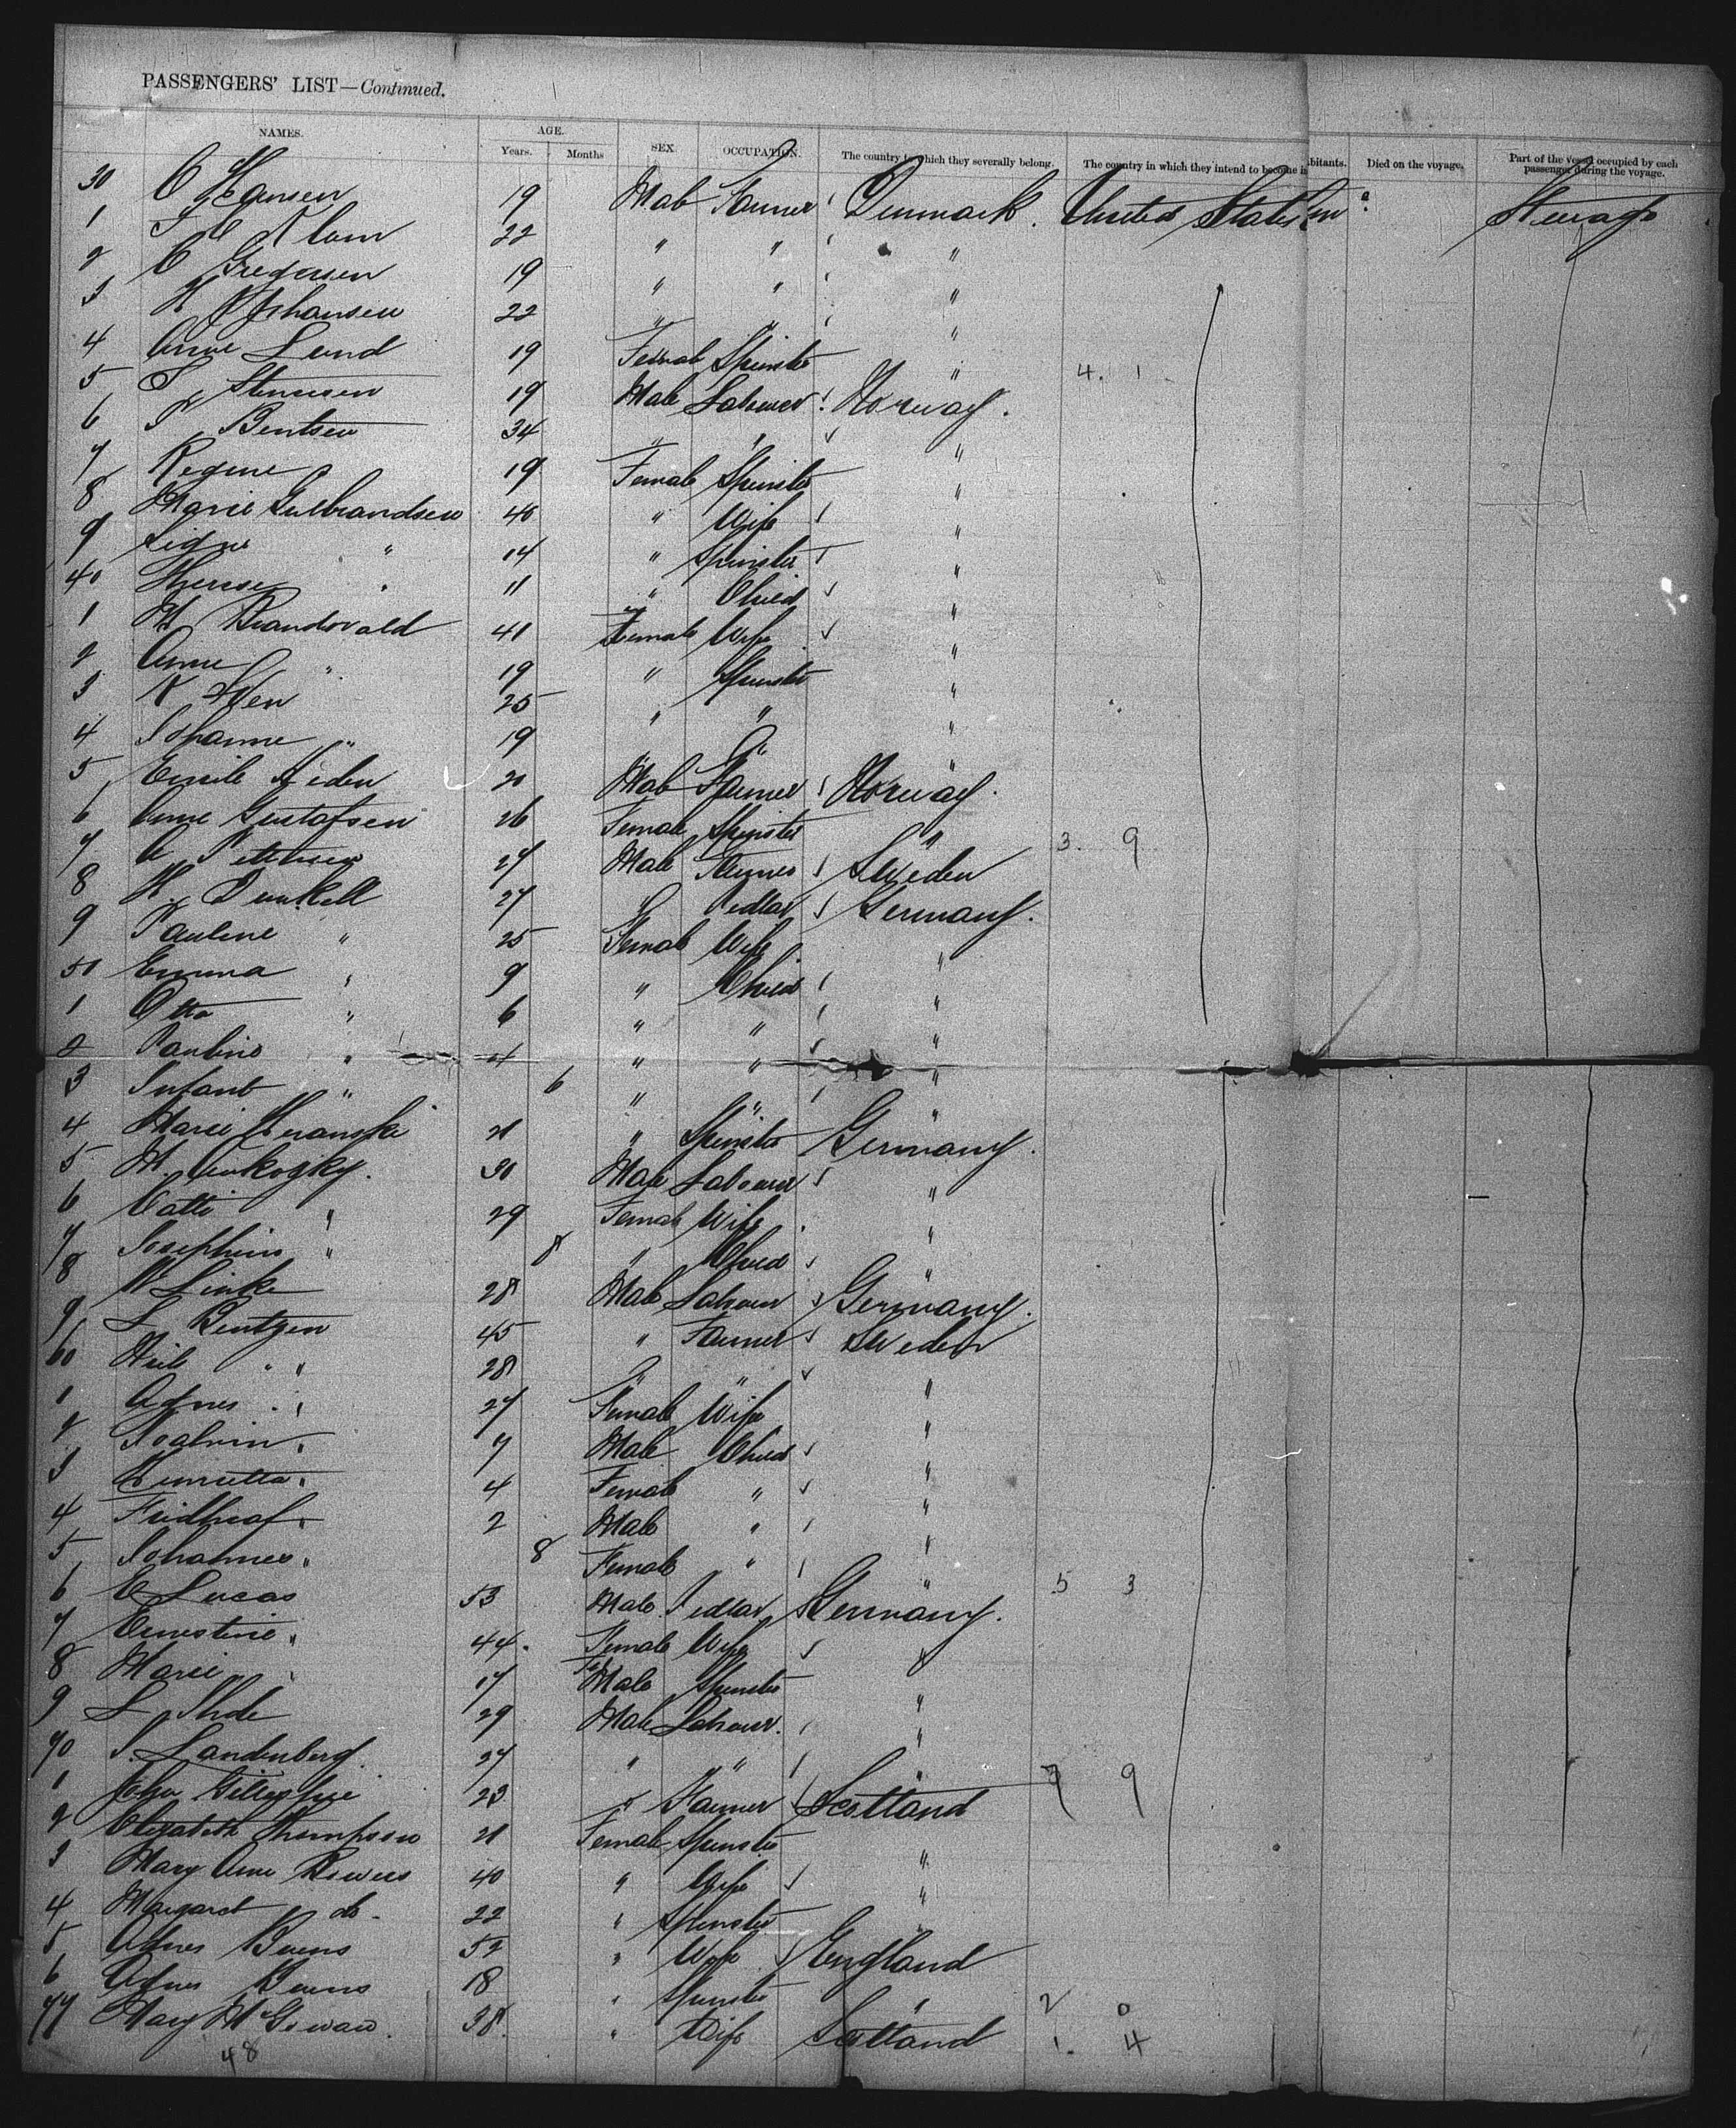 PASSENGERS' LIST—Continued.
NAMES. AGE. SEX. OCCUPATION. The country to which they severally belong. The country in which they intend to become inhabitants. Died on the voyage. Part of the vessel occupied by each passenger during the voyage.
Years. Months
30 C Hansen 19 Male Farmer Denmark. United States Steerage
1 22 " " "
2 C Gregersen 19 " " "
3 H Johansen 22 " " "
4 Anne Lund 19 Female Spinster " 4. 1
5 S Stensen 19 Male Labourer Norway.
6 P Bentsen 34 " " "
7 Regine 19 Female Spinster "
8 Marie Gulbrandsen 40 " Wife "
9 Signe " 14 " Spinster "
40 Therese " 11 " Child "
1 M 41 Female Wife "
2 Anne " 19 " Spinster "
3 N 25 " " "
4 Johanne " 19 " "
5 Emile 20 Male Farmer Norway.
6 Anne Gustafsen 26 Female Spinster " 3. 9
7 A Pettersen 27 Male Farmer Sweden
8 H. Dunkell 27 " Pedlar Germany.
9 Pauline " 25 Female Wife "
50 Emma " 9 " Child "
1 Otto " 6 " " "
2 Pauline " 4 " " "
3 Infant " 6 " " "
4 Marie 21 " Spinster Germany.
5 M. 30 Male Labourer "
6 Catti " 29 Female Wife "
7 Josephine " 8 " Child "
8 W Link 28 Male Labourer Germany.
9 L Bentzen 45 " Farmer Sweden
60 " " 28 " " "
1 Agnes " 27 Female Wife "
2 " 7 Male Child "
3 Henrietta " 4 Female " "
4 " 2 Male " "
5 Johannes " 8 Female " " 5 3
6 E Lucas 53 Male Pedlar Germany.
7 Ernestine " 44 Female Wife "
8 Marie " 17 Female Spinster "
9 L 29 Male Labourer "
70 S. Landenberg 27 " " " 7 9
1 John Gillespie 23 " Farmer Scotland
2 Elizabeth Thompson 21 Female Spinster "
3 Mary Ann 40 " Wife "
4 Margaret do 22 " Spinster "
5 Agnes Burns 52 " Wife England
6 Agnes Burns 18 " Spinster " 2 0
77 Mary 38 " Wife Scotland 1. 4
48